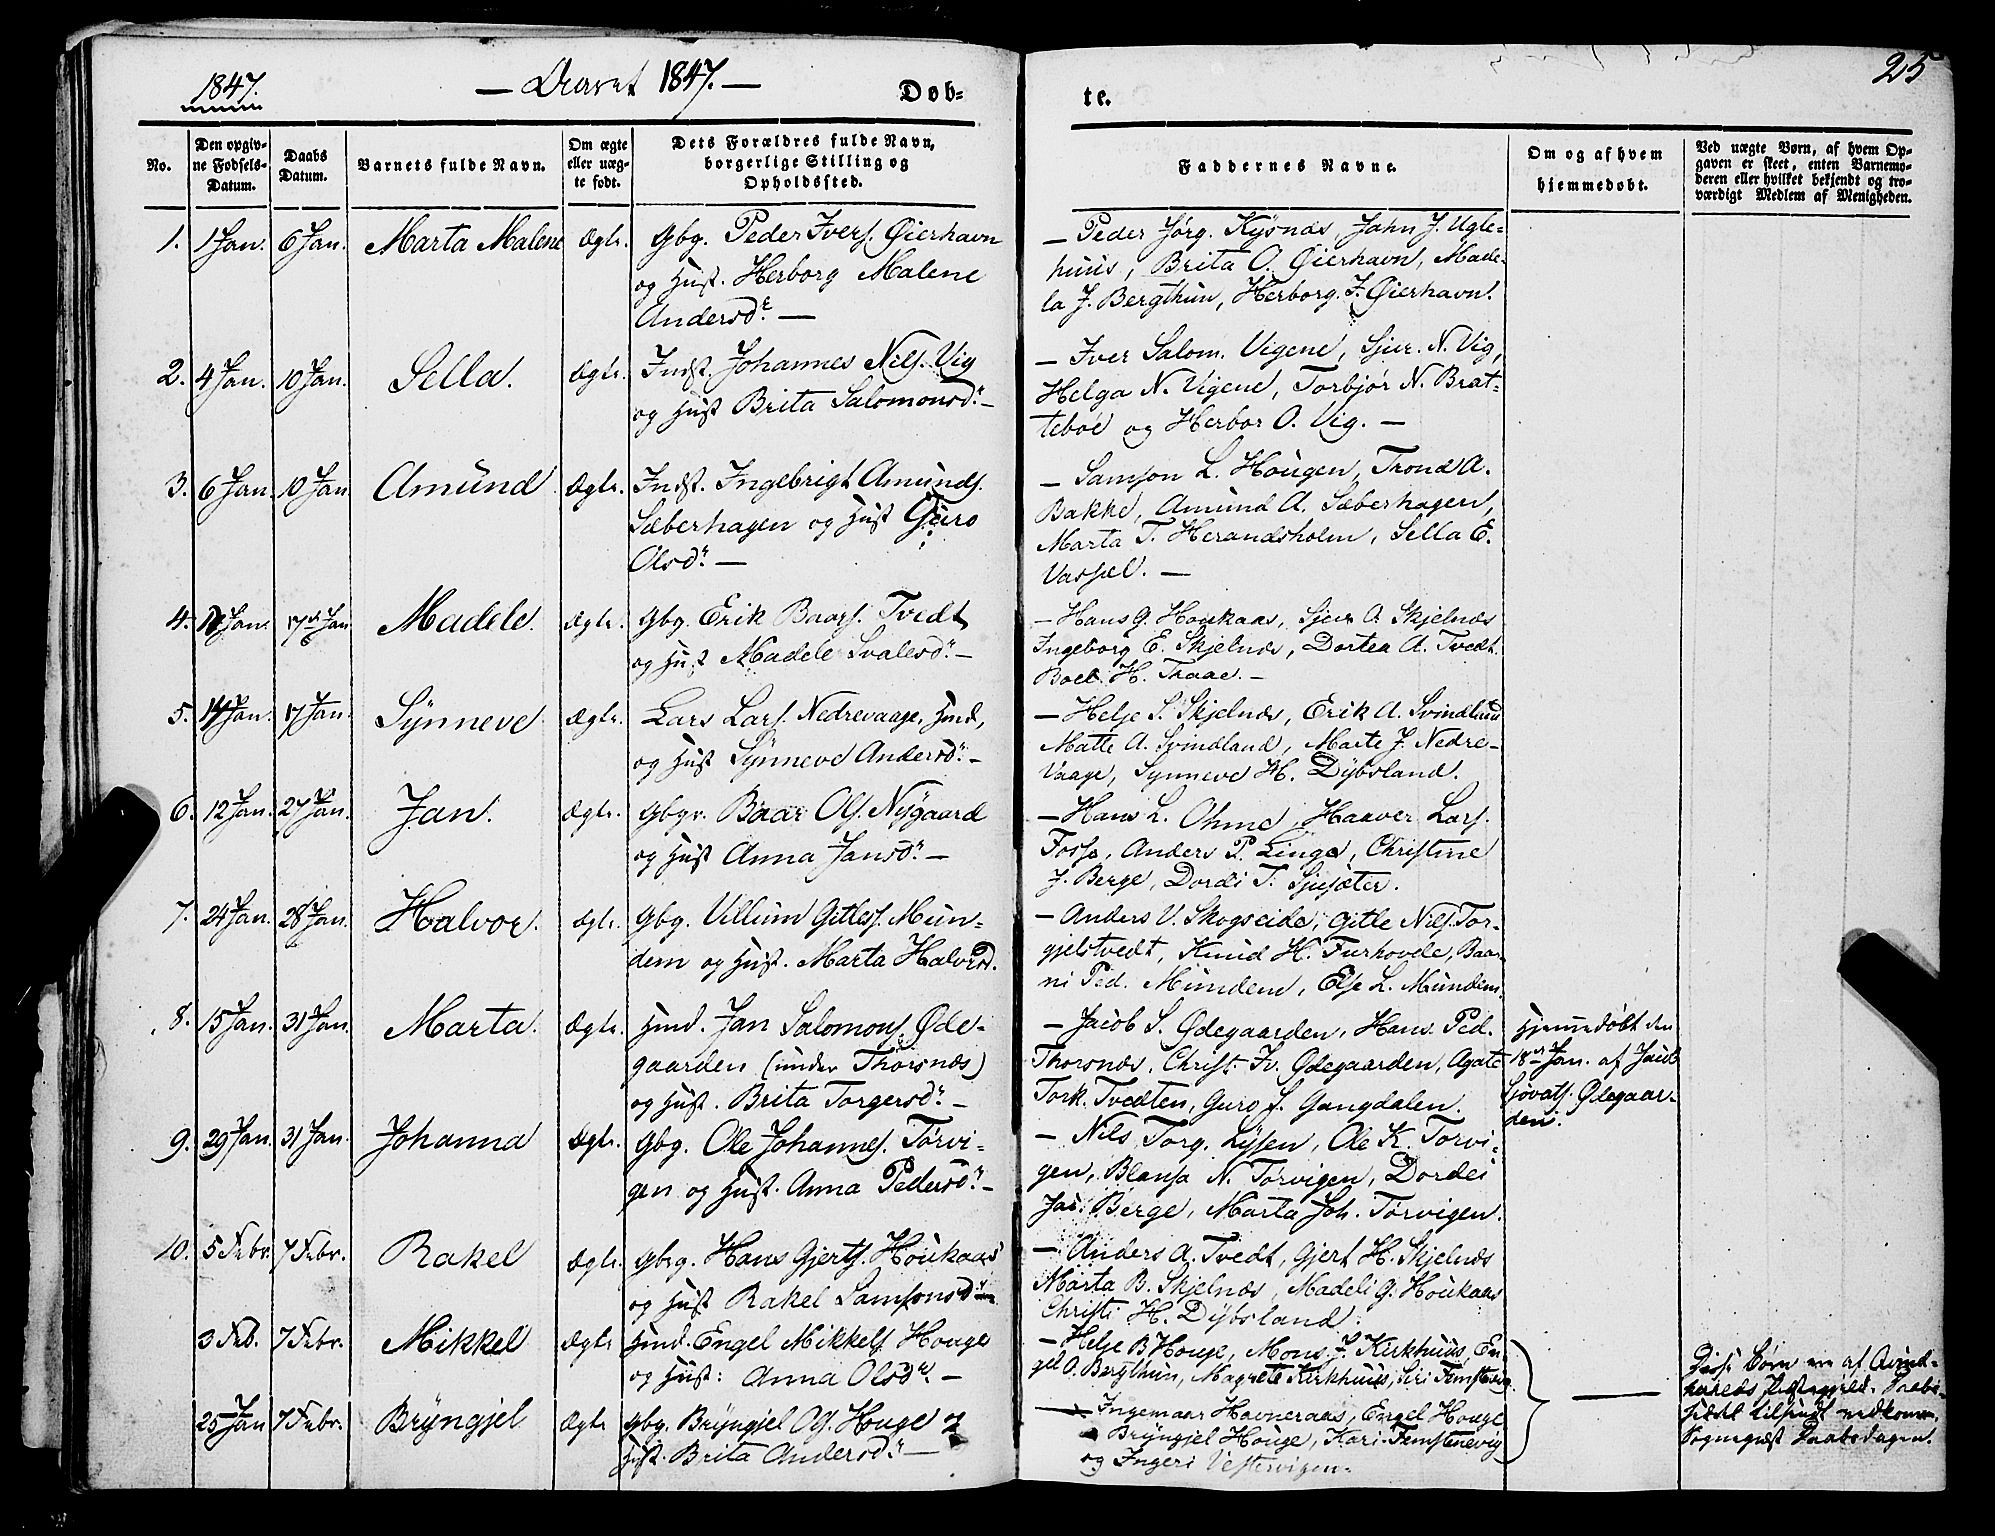 1847.
— Aaret 1847. —
Døb-
te.
25
No.
Den opgiv-
ne Fødsels-
Datum.
Daabs
Datum.
Barnets fulde Navn.
Om ægte
eller uæg-
te født.
Dets Forældres fulde Navn,
borgerlige Stilling og
Opholdssted.
Faddernes Navne.
Om og af hvem
hjemmedøbt.
Ved uægte Børn, af hvem Op-
gaven er skeet, enten Barnemo-
deren eller hvilket bekjendt og tro-
værdigt Medlem af Menigheden.
1. 1 Jan. 6 Jan. Marta Malene Ægte. Gbg. Peder Ivers. Øierhavn
og Hust. Herborg Malene
Andersdr. —
— Peder Jørg. Kysnæs, John J. Ugle-
huus, Brita O. Øierhavn, Made-
la J. Bergthun, Herborg J. Øierhavn.
2. 4 Jan. 10 Jan. Sella. Ægte. Indst. Johannes Nils. Vig
og Hust Brita Salomonsdr. —
— Iver Salom. Vigene, Sjur N. Vig,
Helga N. Vigene, Torbjør N. Brat-
tebøe og Herbor O. Vig. —
3. 6 Jan. 10 Jan Amund Ægte. Indst. Ingebrigt Amunds.
Sæberhagen og Hust Guro
Olsdr. —
— Samson L. Hougen, Trond A.
Bakke, Amund A. Sæberhagen,
Marta T. Herandsholm, Sella E.
Vassel. —
4. Jan. 17de Jan Madele. Ægte. Gbg. Erik Baars. Tvedt
og Hust Madele Svalesdr. —
— Hans G. Houkaas, Sjur A. Skjelnæs
Ingeborg E. Skjelnæs, Dortea A. Tvedt.
Boel H. Traae. —
5. 14 Jan. 17 Jan. Synneve Ægte. Lars Lars. Nedrevaage, Hmd,
og Hust Synneve Andersdr. —
— Helje S. Skjelnæs, Erik A. Svindland
Matte A. Svindland, Marte J. Nedre-
vaage, Synneve H. Dybsland.
6. 12 Jan. 27 Jan. Jan. Ægte. Gbgr. Baar Ols. Nygaard
og Hust Anna Jansdr. —
— Hans L. Ohme, Haaver Lars.
Fosse, Anders P. Linga, Christine
J. Berge, Dordi T. Sjusæter.
7. 24 Jan. 28 Jan. Halvor. Ægte. Gbg. Villum Gitless. Mun-
dem og Hust. Marta Halvorsd.
— Anders V. Skogseide, Gitle Nils. Tor-
gjelstvedt, Knud H. Furhovde, Baar-
ni Ped. Mundem, Else L. Mundem.
8. 15 Jan. 31 Jan. Marta. Ægte. Hmd. Jan Salomons. Øde-
gaarden (under Thorsnæs)
og Hust. Brita Torgersdr. —
— Jacob S. Ødegaarden, Hans Ped.
Thorsnæs, Christ. Iv. Ødegaarden, Agate
Tork. Tvedten, Guro S. Gangdalen.
Hjemmedøbt den
18de Jan. af Jacob
Sjovats. Ødegaar-
den.
9. 29 Jan. 31 Jan. Johanna Ægte. Gbg. Ole Johannes. Tørvi-
gen og Hust. Anna Pedersdr. —
— Nils Torg. Lysen, Ole K. Torvi-
gen, Blansa N. Tørvigen, Dordei
Jac. Berge, Marta Joh. Tørvigen.
10. 5 Febr. 7 Febr. Rakel Ægte. Gbrg. Hans Gjerts. Houkaas
og Hust Rakel Samsonsdr.
— Anders A. Tvedt, Gjert H. Skjelnæs
Marta B. Skjelnæs, Madeli G. Houkaas
Christi H. Dybsland.
3 Feb. 7 Febr. Mikkel Ægte Hmd. Engel Mikkels. Houge
og Hust: Anna Olsdr. —
— Helje B Houge, Mons J. Kirkhuus, En-
gel O. Bergthun, Magrete Kirkhuus, Siri Femstevig
25 Jan 7 Febr. Bryngjel Ægte Gbg. Bryngjel Ols. Houge og
Hust. Brita Andersdr. —
— Ingemaar Havneraas, Engel Houge
Bryngjel Houge, Kari Femstenevig
og Ingeri Vestervigen.
Disse Børn ere af Qvind-
hereds Præstegjeld. Daabs-
sedel tilsendt vedkom.
Sognepræst Daabsdagen.